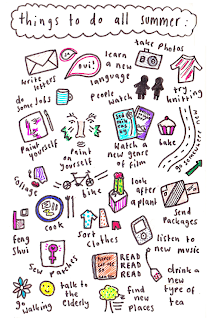 things to do all summer:
write
letters
oui!
learn
a new
language
take Photos
do
some jobs
people
watch
try
knitting
Paint
yourself
Paint
on
yourself
Watch a
new genre
of film
bake
go somewhere
collage
bike
look
after
a plant
cook
send
Packages
feng
Shui
Sort
clothes
listen to
new music
Sew Patches
READ
READ
READ
drink a
new
type of
tea
go
walking
talk to
the
elderly
find
new
Places